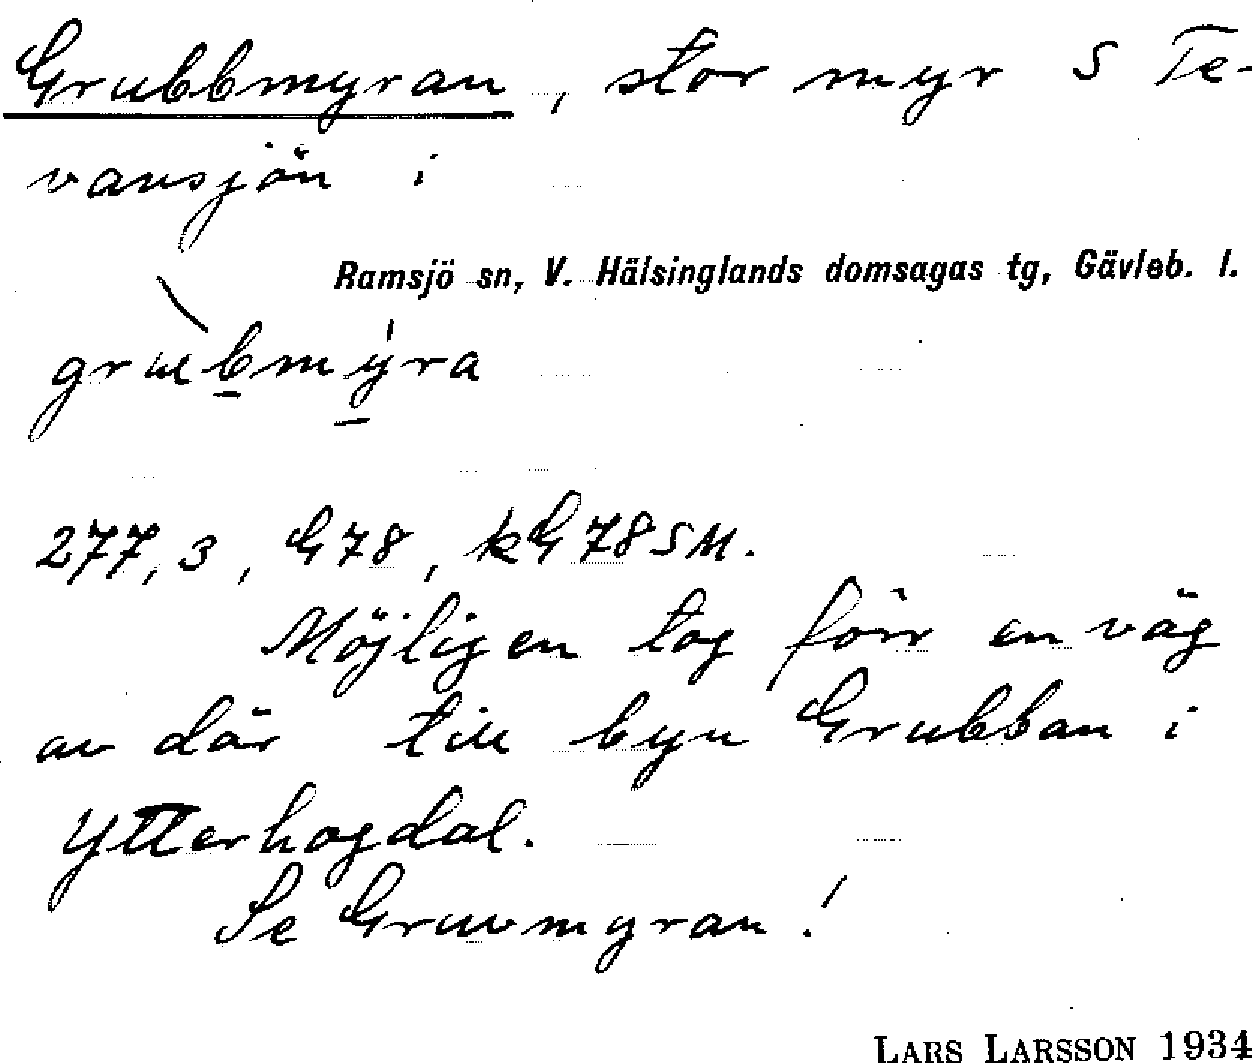 Grubbmyran, stor myr S Te-
vansjön i
Ramsjö sn, V. Hälsinglands domsagas tg, Gävleb. l.
grubmyra
277,3, G78, kG78SM.
Möjligen tog förr en väg
av där till byn Grubban i
Ytterhogdal.
Se Gruvmyran!
LARS LARSSON 1934